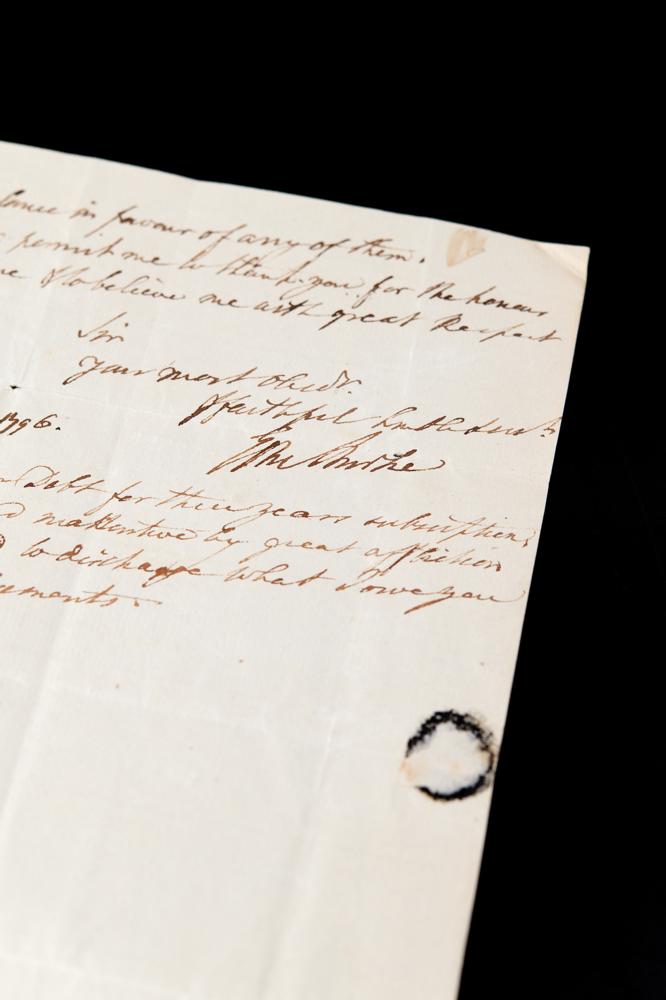 in favour of any of them.
permit me to thank you for the honour
& to believe me with great Respect
Sir
Your most Obedt.
& faithful humble servt.
Edm Burke
1796.
Debt for three years subscription,
inattentive by great affliction
to discharge what I owe you